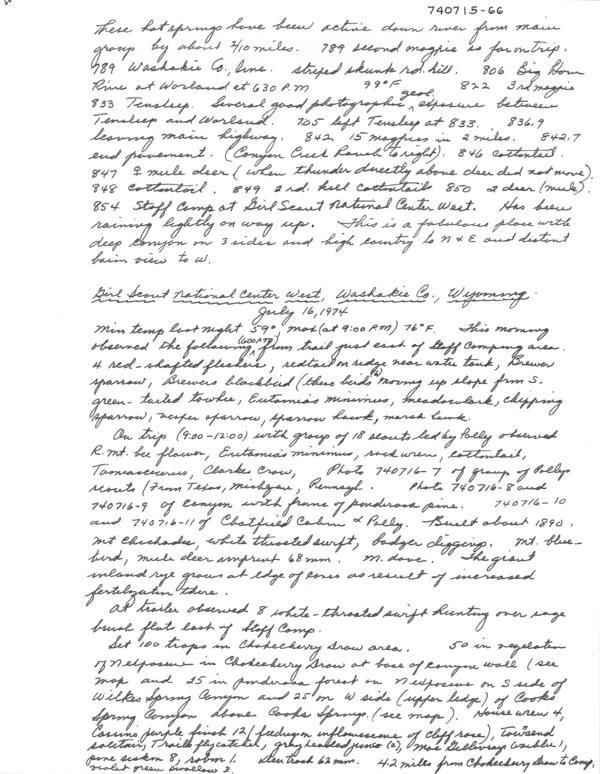 740715-66
These hot springs have been active down river from main
group by about 2/10 miles. 789 second magpie so far on trip.
789 Washakie Co., line. striped skunk rd. kill. 806 Big Horn
River at Worland at 630 P.M 99°F 822 3rd magpie
833 Tensleep. Several good photographic geol. exposure between
Tensleep and Worland. 705 left Tensleep at 833. 836.9
leaving main highway. 842 15 magpies in 2 miles. 842.7
end pavement. (Canyon Creek Ranch to right). 846 cottontail.
847 ♀ mule deer (when thunder directly above deer did not move).
848 cottontail. 849 2 rd. kill cottontail 850 2 deer (mule).
854 Staff Camp at Girl Scout National Center West. Has been
raining lightly on way up. This is a fabulous place with
deep canyon on 3 sides and high country to N & E and distant
basin view to W.
Girl Scout National Center West, Washakie Co., Wyoming.
July 16, 1974
Min temp last night 59°, max (at 9:00 P.M) 76°F. This morning
observed the following from trail just east of Staff Camping area.
4 red-shafted flickers, redtail on ridge near water tank, Brewer
sparrow, Brewers blackbird (these birds moving up slope from S.
green-tailed towhee, Eutamias minimus, meadowlark, chipping
sparrow, vesper sparrow, sparrow hawk, marsh hawk.
On trip (9:00-12:00) with group of 18 scouts led by Polly observed
R. Mt. bee flower, Eutamias minimus, rock wren, cottontail,
Tamiasciurus, Clarks Crow, Photo 740716-7 of group of Pollys
scouts (From Texas, Michigan, . Photo 740716-8 and
740716-9 of Canyon with frame of ponderosa pine. 740716-10
and 740716-11 of Chatfield Cabin & Polly. Built about 1890.
Mt Chickadee, white throated swift, badger diggings. Mt. blue-
bird, mule deer imprint 68 mm. M. dove. The giant
inland rye grows at edge of as result of increased
fertilization there.
At trailer observed 8 white-throated swift hunting over sage
brush flat east of Staff Camp.
Set 100 traps in Chokecherry Draw area. 50 in vegetation
of N exposure in Chokecherry Draw at base of canyon wall (see
map and 25 in ponderosa forest on N exposure on S. side of
Wilkes Spring Canyon and 25 on W side (upper ledge) of Cooks
Spring Canyon above Cooks Springs. (see map). House wren 4,
Cassins purple finch 12 (feeding on inflorescence of cliff rose), Townsend
solitair, Traills flycatcher, grayheaded junco (2), Mac Gillivray warbler 1,
pine siskin 8, robin 1. Deer track 62 mm. 4.2 miles from Chokecherry Draw to Camp.
violet green swallow 3.